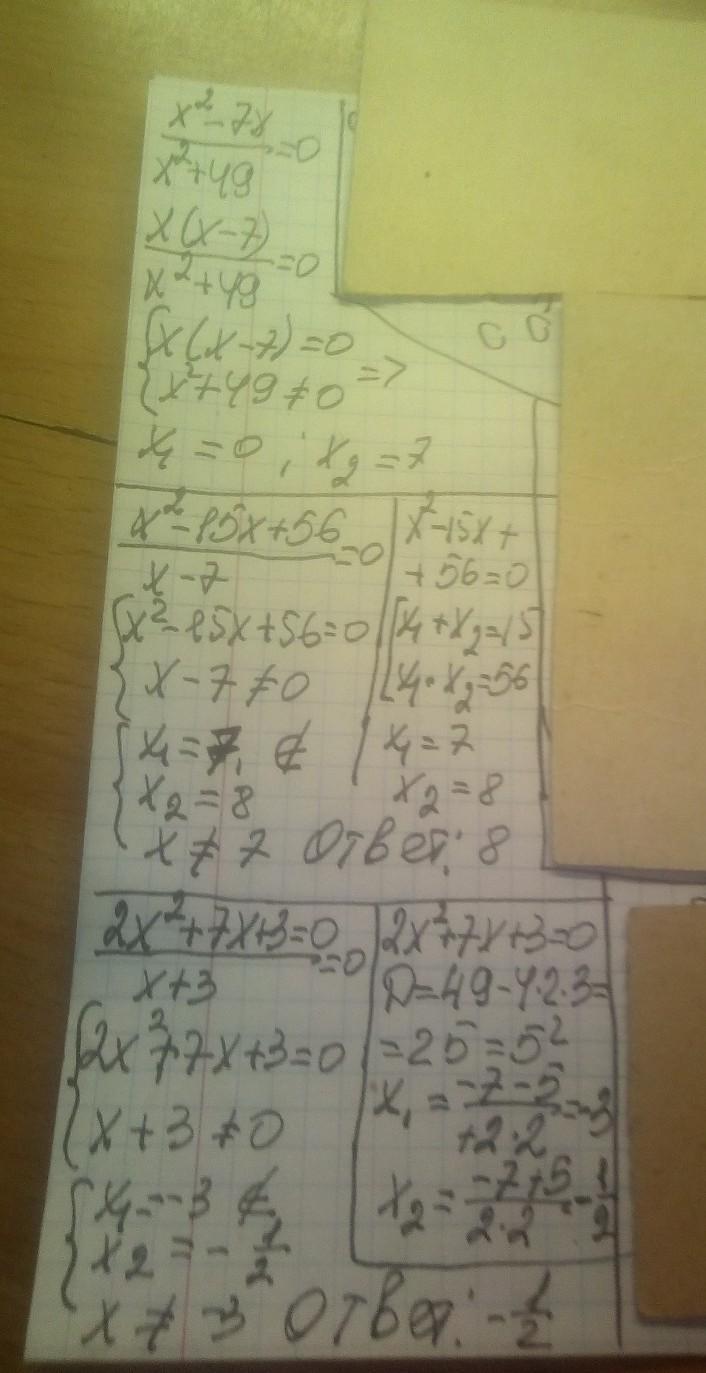 x²-7x
x²+49 =0
x(x-7)
x²+49 =0
{x(x-7)=0
{x²+49≠0 =>
x₁=0; x₂=7
x²-15x+56
x-7 =0
{x²-15x+56=0
{x-7≠0
{x₁=7, ∉
{x₂=8
{x≠7 Ответ: 8
x²-15x+
+56=0
[x₁+x₂=15
[x₁·x₂=56
x₁=7
x₂=8
2x²+7x+3=0
x+3 =0
{2x²+7x+3=0
{x+3≠0
{x₁=-3 ∉
{x₂=-1/2
{x≠-3 Ответ: -1/2
2x²+7x+3=0
D=49-4·2·3=
=25=5²
x₁=(-7-5)/(+2·2)=-3
x₂=(-7+5)/(2·2)=-1/2